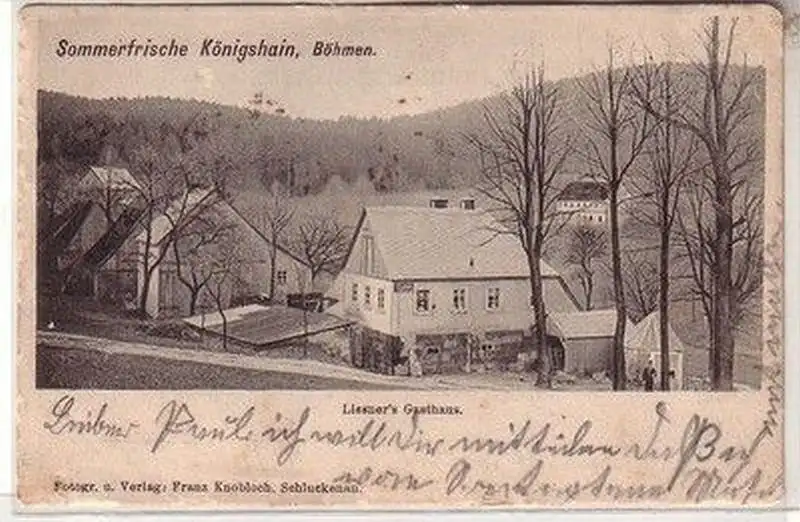 Sommerfrische Königshain, Böhmen.
Liesner's Gasthaus.
Lieber Paul ich will Dir mitteilen daß
vom
Fotogr. u. Verlag: Franz Knobloch, Schluckenau.